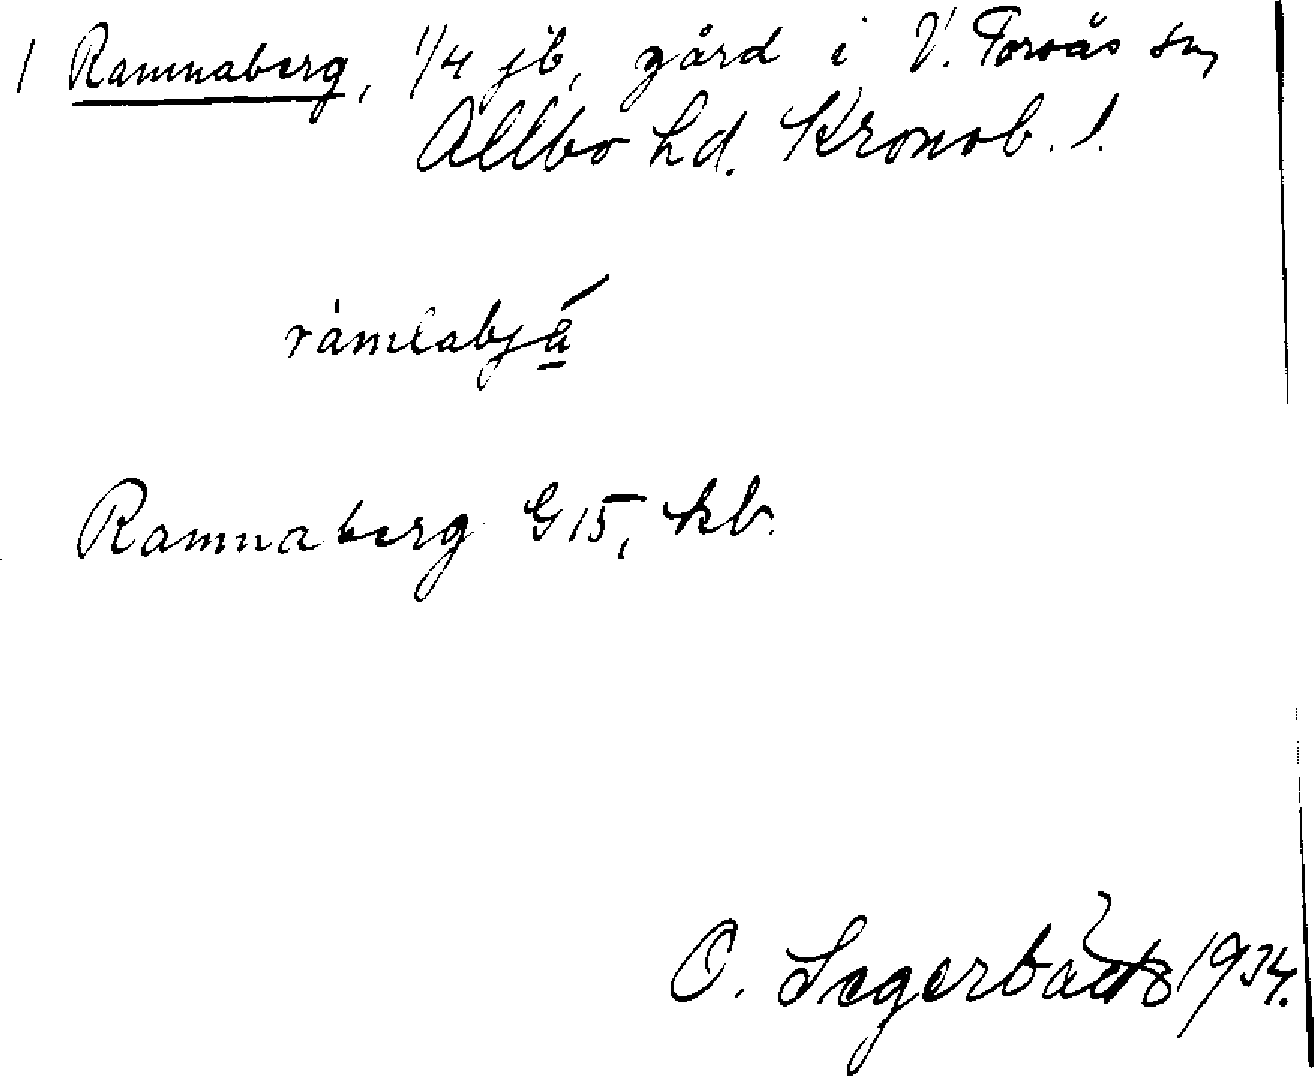 1 Ramnaberg, 1/4 jb, gård i V. Torsås sn,
Allbo hd. Kronob. l.
råmlabjä
Ramnaberg G 15, kb.
O. 1934.